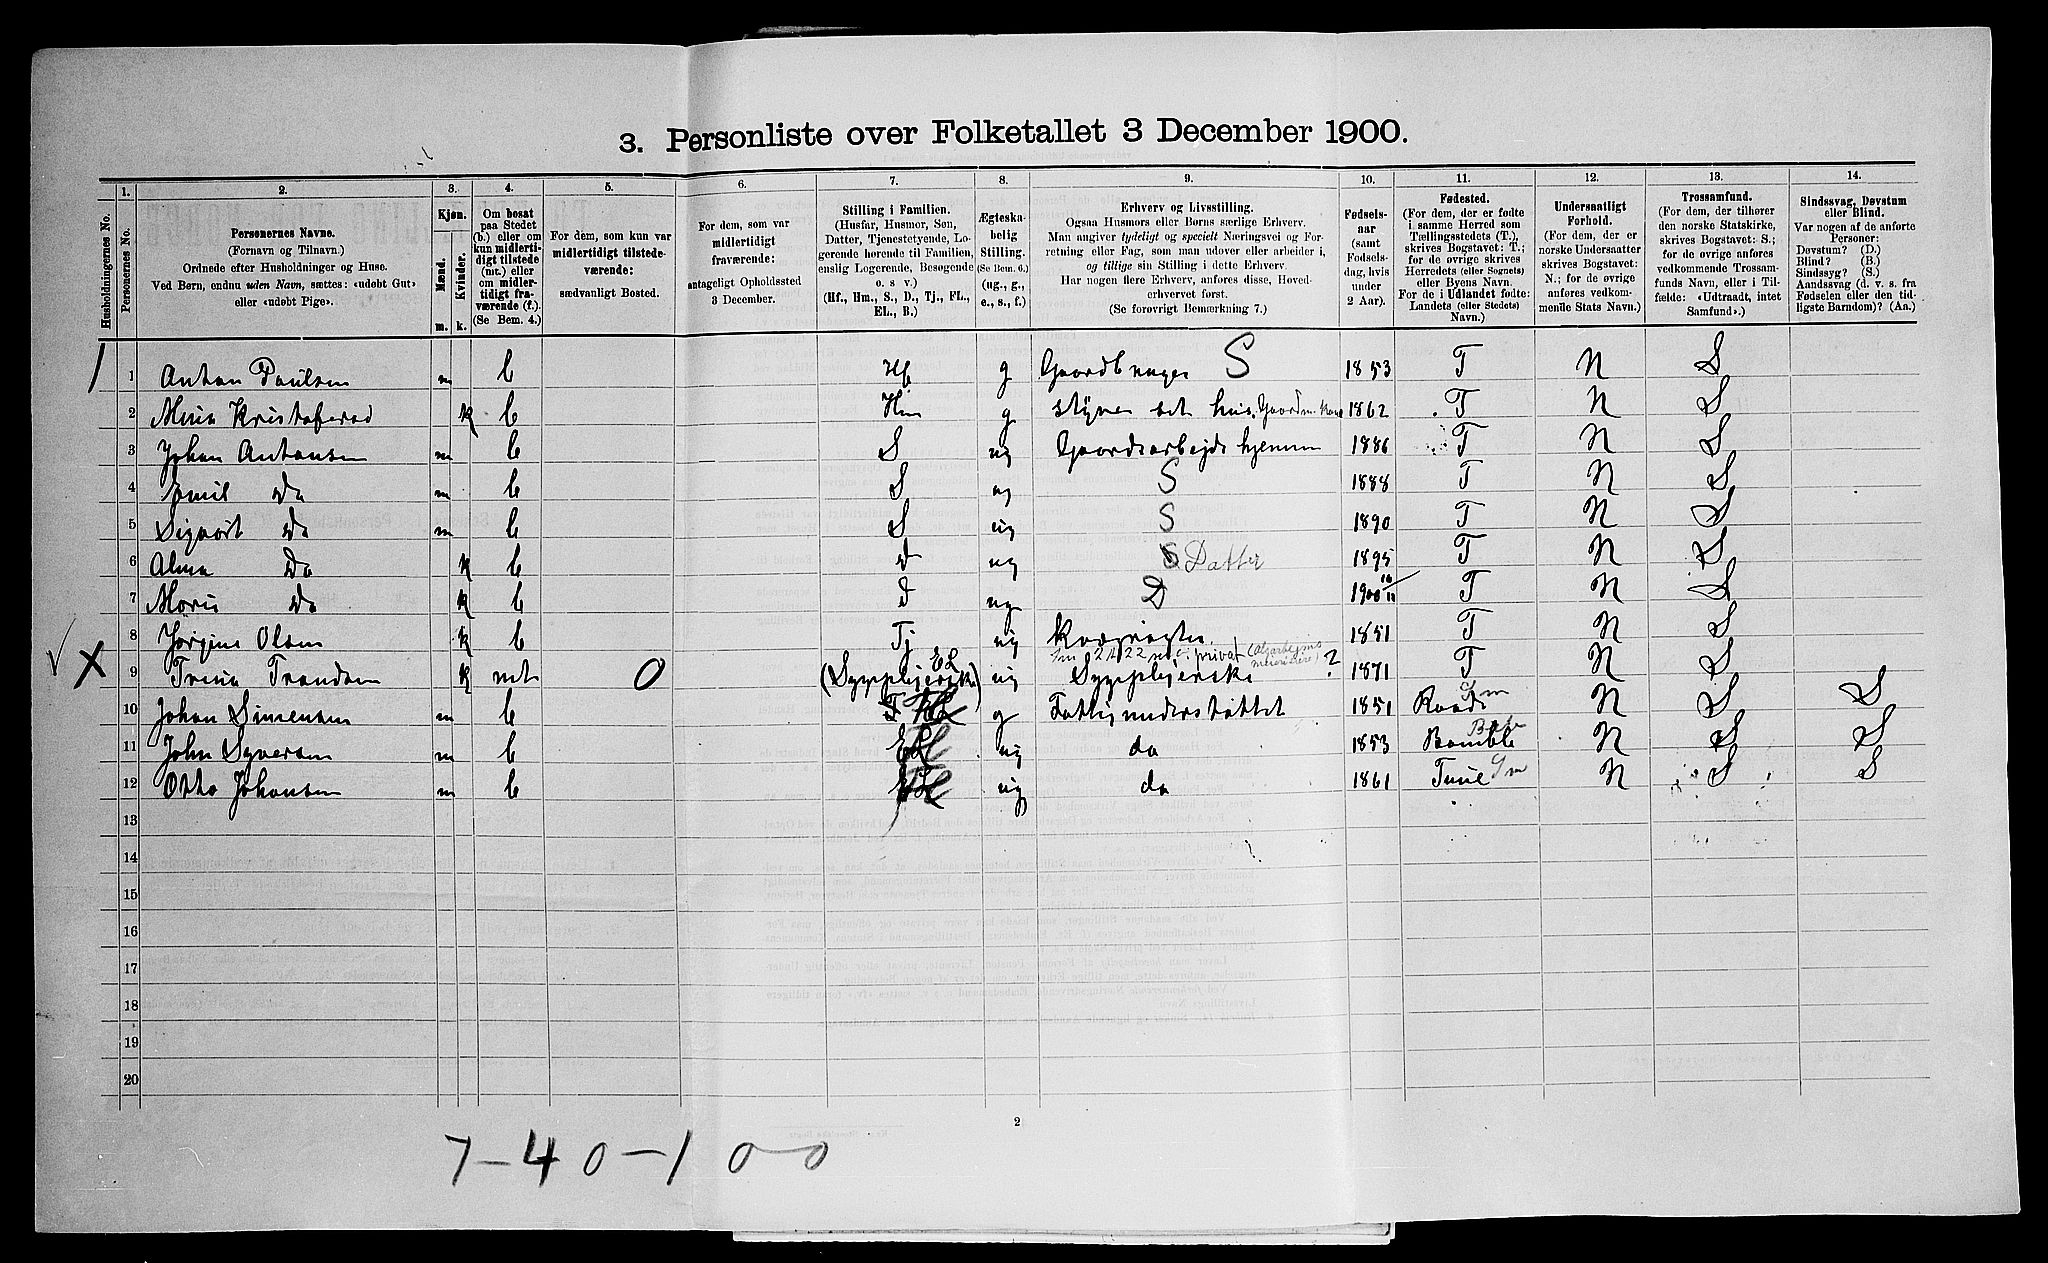 3. Personliste over Folketallet 3 December 1900.
Husholdningernes No.
1. Personernes No.
2. Personernes Navne. (Fornavn og Tilnavn.) Ordnede efter Husholdninger og Huse. Ved Børn, endnu uden Navn, sættes: «udøbt Gut» eller «udøbt Pige».
3. Kjøn. Mænd. Kvinder. m. k.
4. Om bosat paa Stedet (b.) eller om kun midlertidigt tilstede (mt.) eller om midlertidigt fraværende (f.). (Se Bem. 4.)
5. For dem, som kun var midlertidigt tilstedeværende: sædvanligt Bosted.
6. For dem, som var midlertidigt fraværende: antageligt Opholdssted 3 December.
7. Stilling i Familien. (Husfar, Husmor, Søn, Datter, Tjenestetyende, Logerende hørende til Familien, enslig Logerende, Besøgende o. s. v.) (Hf., Hm., S., D., Tj., FL., EL., B.)
8. Ægteskabelig Stilling. (Se Bem. 6.) (ug., g., e., s., f.)
9. Erhverv og Livsstilling. Ogsaa Husmors eller Børns særlige Erhverv. Man angiver tydeligt og specielt Næringsvei og Forretning eller Fag, som man udøver eller arbeider i, og tillige sin Stilling i dette Erhverv. Har nogen flere Erhverv, anføres disse, Hovederhvervet først. (Se forøvrigt Bemærkning 7.)
10. Fødselsaar (samt Fødselsdag, hvis under 2 Aar).
11. Fødested. (For dem, der er fødte i samme Herred som Tællingsstedets (T.), skrives Bogstavet: T.; for de øvrige skrives Herredets (eller Sognets) eller Byens Navn. For de i Udlandet fødte: Landets (eller Stedets) Navn.)
12. Undersaatligt Forhold. (For dem, der er norske Undersaatter skrives Bogstavet: N.; for de øvrige anføres vedkommende Stats Navn.)
13. Trossamfund. (For dem, der tilhører den norske Statskirke, skrives Bogstavet: S.; for de øvrige anføres vedkommende Trossamfunds Navn, eller i Tilfælde: «Udtraadt, intet Samfund».)
14. Sindssvag, Døvstum eller Blind. Var nogen af de anførte Personer: Døvstum? (D.) Blind? (B.) Sindssyg? (S.) Aandssvag (d. v. s. fra Fødselen eller den tidligste Barndom)? (Aa.)
1 1 Anton Paulsen m b Hf g Gaardbruger S 1853 T N S
2 k b Hm g 1862 T N S
3 Johan Antonsen m b S ug Gaardsarbejde hjemme 1886 T N S
4 Emil Do m b S ug S 1888 T N S
5 Sigvart Do m b S ug S 1890 T N S
6 Alma Do k b D ug Datter 1895 T N S
7 Do k b D ug D 1900 T N S
8 Olsen k b Tj ug 1851 T N S
X 9 k mt 0 (Sygeplejerske) EL ug Sygeplejerske ? 1871 T N S
10 Johan Simensen m b g Fattigunderstøttet 1851 N S S
11 John Syversen m b EL ug do 1853 Bamble N S S
12 Otto Johansen m b ug do 1861 Tune N S S
13
14
15
16
17
18
19
20
2
7 – 4 0 – 1 0 – 0